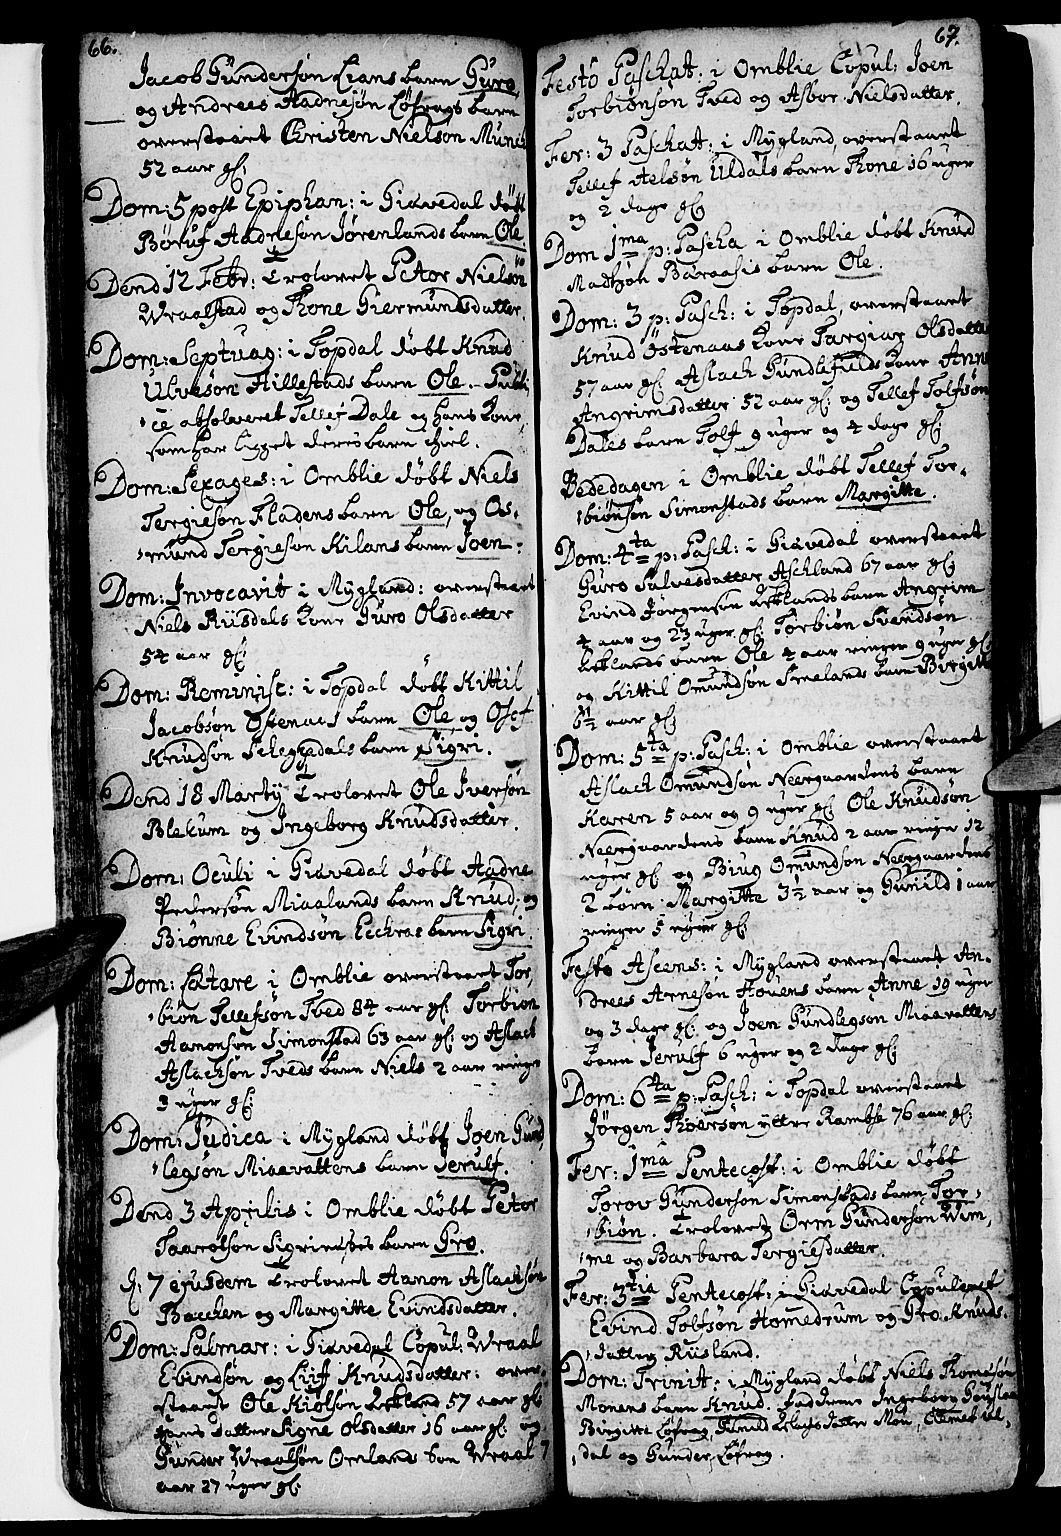 66.
Jacob Gundersøn Lians barn Guro,
og Andrees Aadnesøn Løfrags barn
overstaaet Christen Nielson Munch
52 aar gl:
Dom: 5 post Epiphan: i Giøvedal døbt
Børuf Aadnesøn Jørenlands barn Ole
Dend 12 Febr: trolovet Petor Nielsøn
Wraalstad og Thone Giermundsdatter.
Dom: Septuag: i Topdal døbt Knud
Ulvesøn Hillestads barn Ole. Publi,
cè absolveret Tellef Dale og hans kone
som har ligget deris barn ihiel.
Dom: Sexages: i Omblie døbt Niels
Tergiesøn Fladens barn Ole, og Os-
mund Tergiesøn Kilans barn Joen.
Dom: Invocavit i Mygland: overstaaet
Niels Riisdals kone Guro Olsdatter
54 aar gl:
Dom: Reminisc: i Topdal døbt Kittil
Jacobsøn Ostenaes barn Ole og Osof
Knudsøn barn Sigri.
Dend 18 Martij trolovet Ole Iversøn
Blekum og Ingeborg Knudsdatter.
Dom: Oculi i Giøvedal døbt Aadne
Pedersøn Miaalands barn Knud, og
Biønne Evindsøn Eechras barn Sigri
Dom: Lætare i Omblie overstaaet Tor,
biøn Tellefsøn Tved 84 aar gl: Torbiøn
Aamonsøn Simonstad 63 aar gl: og Aslach
Aslachsøn Tveds barn Niels 2 aar ringer
3 uger gl:
Dom: Judica i Mygland døbt Joen Gund,
legsøn Miaavattens barn Jerulf.
Dend 3 Aprilis i Omblie døbt Petor
Taarolsøn barn Gro.
d: 7 ejusdem trolovet Aamon Aslachsøn
Bacchen og Margitte Evindsdatter.
Dom: Palmar: i Giøvedal Copul: Wraal
Evindsøn og Liif Knudsdatter: over,
staaet Ole Kiølsøn Lekland 57 aar gl:
hans datter Signe Olsdatter 16 aar gl: og
Gunder Wraalsøn Omland søn Wraal 7
aar 27 uger gl:
67.
Festo Paschat: i Omblie Copul: Joen
Torbiønsøn Tved og Asbor Nielsdatter.
Fer: 3 Paschat: i Mygland, overstaaet
Tellef Aelsøn Uldals barn Thone 16 uger
og 2 dage gl:
Dom 1ma p: Pascha i Omblie døbt Knud
Madthøn barn Ole.
Dom: 3 p: Pasch: i Topdal, overstaaet
Knud Østenaas kone Targiær Olsdatter
57 aar gl: Aslach Gundlefields kone Anne
Angrimsdatter 52 aar gl: og Tellef Tolfsøn
Dales barn Tolf 9 uger og 4 dage gl:
Bededagen i Omblie døbt Tellef Tor-
biønsøn Simonstads barn Margitte.
Dom: 4ta p: Pasch: i Giøvedal overstaaet
Guro Salvesdatter Aschland 67 aar gl:
Evind Jørgensøn Leklands barn Angrim
4 aar og 23 uger gl: Torbiøn Svendsøn
Leklands barn Ole 4 aar ringer 9 uger gl:
og Kittil Omundsøn Smelands barn Birgitte
6½ aar gl:
Dom: 5ta p: Pasch: i Omblie overstaaet
Aslach Omundsøn Neergaardens barn
Karen 5 aar og 9 uger gl: Ole Knudsøn
Neergaardens barn Knud 2 aar ringer 12
uger gl: og Biug Omundsøn Neergaardens
2 børn: Margitte 3½ aar og Gunild 1 aar
ringer 5 uger gl:
Festo Ascens: i Mygland overstaaet An-
drees Arnesøn Hovens barn Anne 19 uger
og 3 dage gl: og Joen Gundlegsøn Miaavattens
barn Jerulf 6 uger og 2 dage gl:
Dom: 6ta p: Pasch: i Topdal overstaaet
Jørgen Thoersøn yttre Ramse 76 aar gl:
Fer: 1ma Pentecost: i Omblie døbt
Torov Gundersøn Simonstads barn Tor-
biøn. Trolovet Orm Gundersøn Wim,
me og Barbara Tergiesdatter.
Fer: 3tia Pentecost: i Giøvedal Copuleret
Evind Tolfsøn Homedrum og Gro Knuds-
datter Riisland.
Dom: Trinit: i Mygland døbt Niels Thomesøn
Monens barn Knud. faddrene Ingeborg
Birgitte Løfrag, Gunild datter Moen, Ul,
dal og Gunder Løfrag.